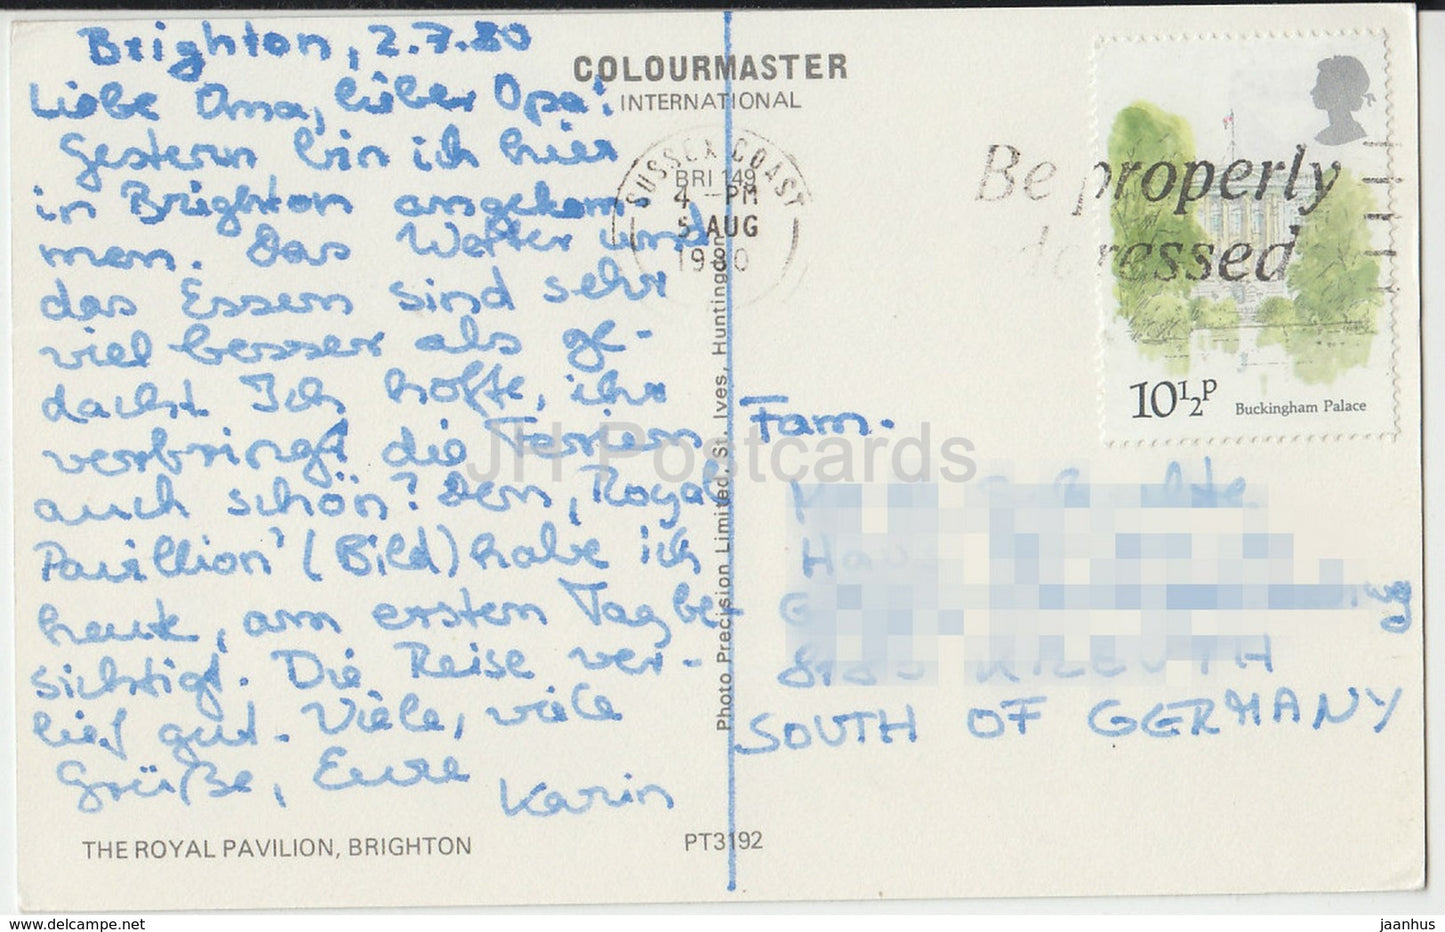 Brighton, 2.7.80
Liebe Oma, lieber Opa!
Gestern bin ich hier
in Brighton angekom-
men. Das Wetter und
das Essen sind sehr
viel besser als ge-
dacht. Ich hoffe, ihr
verbringt die Ferien
auch schön? Den, Royal
Pavillion' (Bild) habe ich
heute, am ersten Tag be-
sichtigt. Die Reise ver-
lief gut. Viele, viele
Grüße, Eure
Karin
THE ROYAL PAVILION, BRIGHTON
PT3192
COLOURMASTER
INTERNATIONAL
Photo Precision Limited, St. Ives, Huntingdon
SUSSEX COAST
BRI 149
4 - PM
5 AUG
1980
Be properly
addressed
10½P Buckingham Palace
Fam.
SOUTH OF GERMANY
JH Postcards
www.delcampe.net
jaanhus